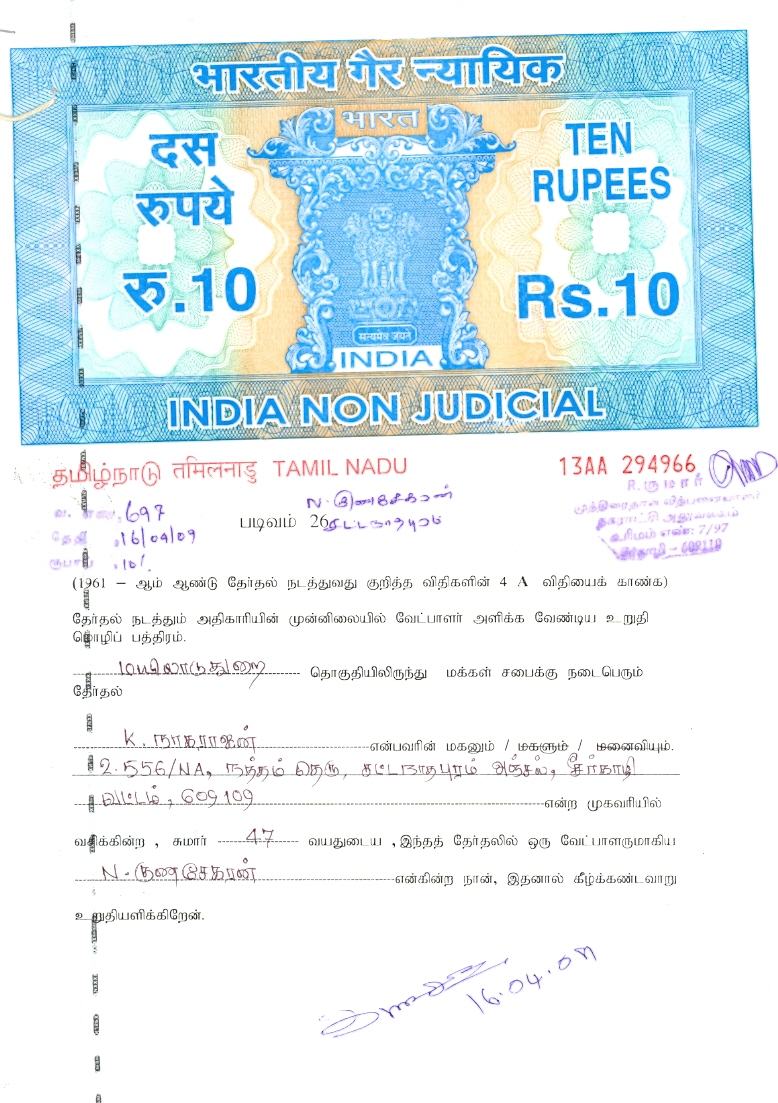 भारतीय गैर न्यायिक
भारत
दस
रुपये
रु.10
TEN
RUPEES
Rs.10
सत्यमेव जयते
INDIA
INDIA NON JUDICIAL
தமிழ்நாடு तमिलनाडु TAMIL NADU
13AA 294966
வ. எண். 697
தேதி 16/04/09
ரூபாய் 10/-
N. குணசேகரன்
சட்டநாதபுரம்
படிவம் 26
முத்திரைதாள் விற்பனையாளர்
உரிமம் எண்: 7/97
சீர்காழி - 609110
(1961 – ஆம் ஆண்டு தேர்தல் நடத்துவது குறித்த விதிகளின் 4 A விதியைக் காண்க)
தேர்தல் நடத்தும் அதிகாரியின் முன்னிலையில் வேட்பாளர் அளிக்க வேண்டிய உறுதி
மொழிப் பத்திரம்.
மயிலாடுதுறை தொகுதியிலிருந்து மக்கள் சபைக்கு நடைபெரும்
தேர்தல்
K. நாகராஜன் என்பவரின் மகனும் / மகளும் / மனைவியும்.
2.556/NA, நத்தம் தெரு, சட்டநாதபுரம் அஞ்சல், சீர்காழி
வட்டம், 609109 என்ற முகவரியில்
வசிக்கின்ற , சுமார் 47 வயதுடைய , இந்தத் தேர்தலில் ஒரு வேட்பாளருமாகிய
N. குணசேகரன் என்கின்ற நான், இதனால் கீழ்க்கண்டவாறு
உறுதியளிக்கிறேன்.
16.04.09